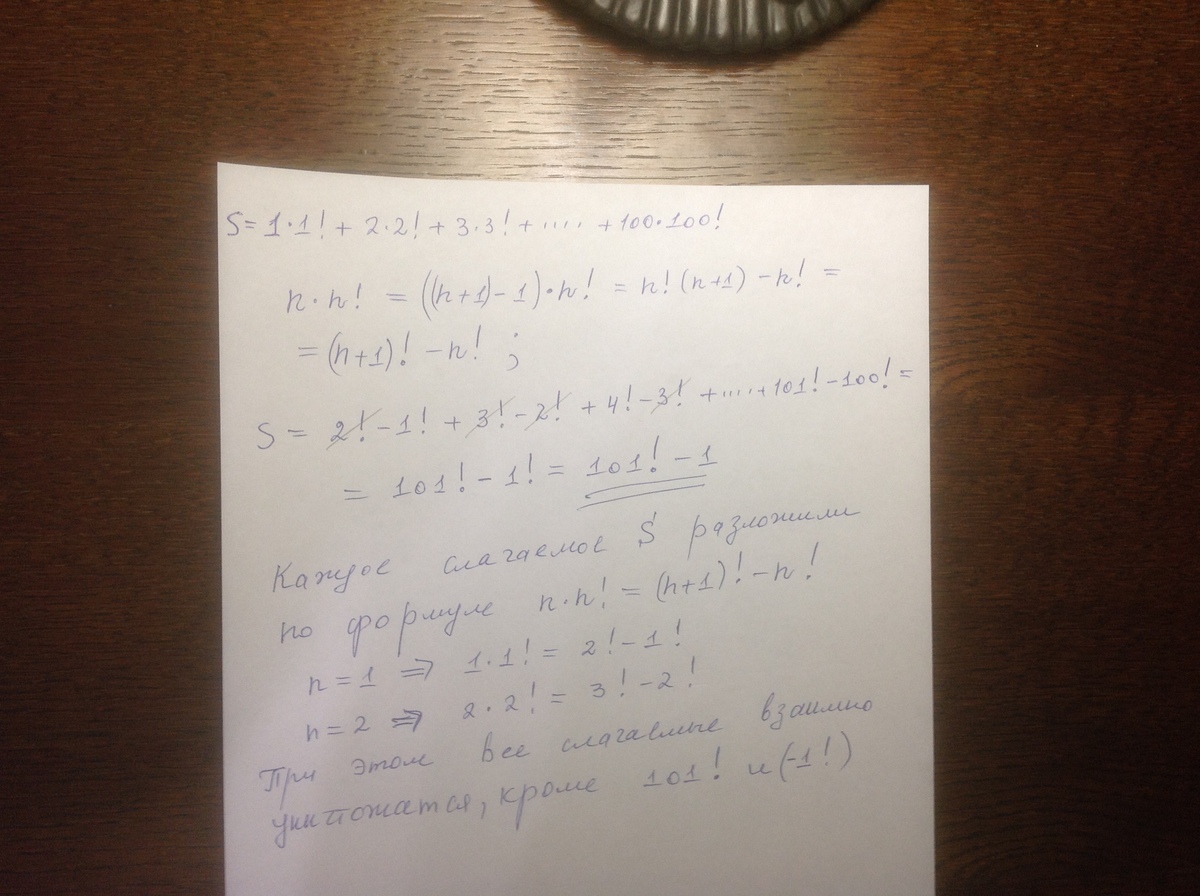 S = 1·1! + 2·2! + 3·3! + ···· + 100·100!
n·n! = ((n+1)-1)·n! = n!(n+1) - n! =
= (n+1)! - n! ;
S = 2! - 1! + 3! - 2! + 4! - 3! + ···· + 101! - 100! =
= 101! - 1! = 101! - 1
Каждое слагаемое S разложили
по формуле n·n! = (n+1)! - n!
n = 1 ⇒ 1·1! = 2! - 1!
n = 2 ⇒ 2·2! = 3! - 2!
При этом все слагаемые взаимно
уничтожатся, кроме 101! и (-1!)